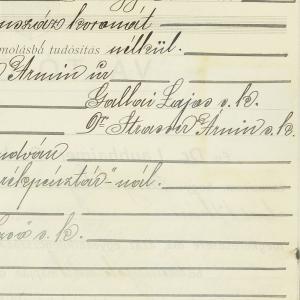 koronát
molásba tudósítás nélkül.
Ármin úr
Gallai Lajos s.k.
Dr. Strasser Ármin s.k.
udván
rékpénztár"-nál.
s.k.